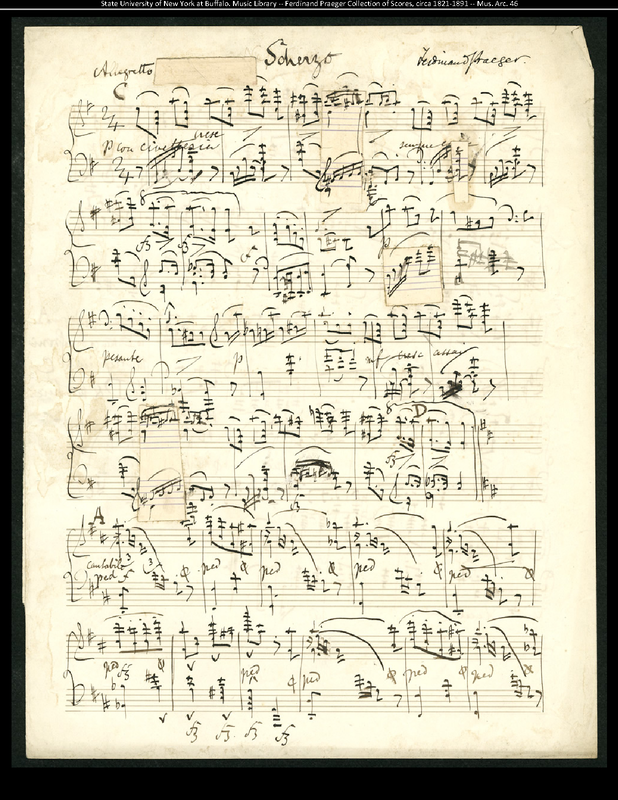 State University of New York at Buffalo. Music Library -- Ferdinand Praeger Collection of Scores, circa 1821-1891 -- Mus. Arc. 46
Scherzo
Ferdinand Praeger.
Allegretto
C
2/4
p con
2/4
8
p
pesante
p
mf
assai
8
D
A
Cantabile 3 3
ped
ped
ped
ped
ped
ped
ped
ped
ped
ped